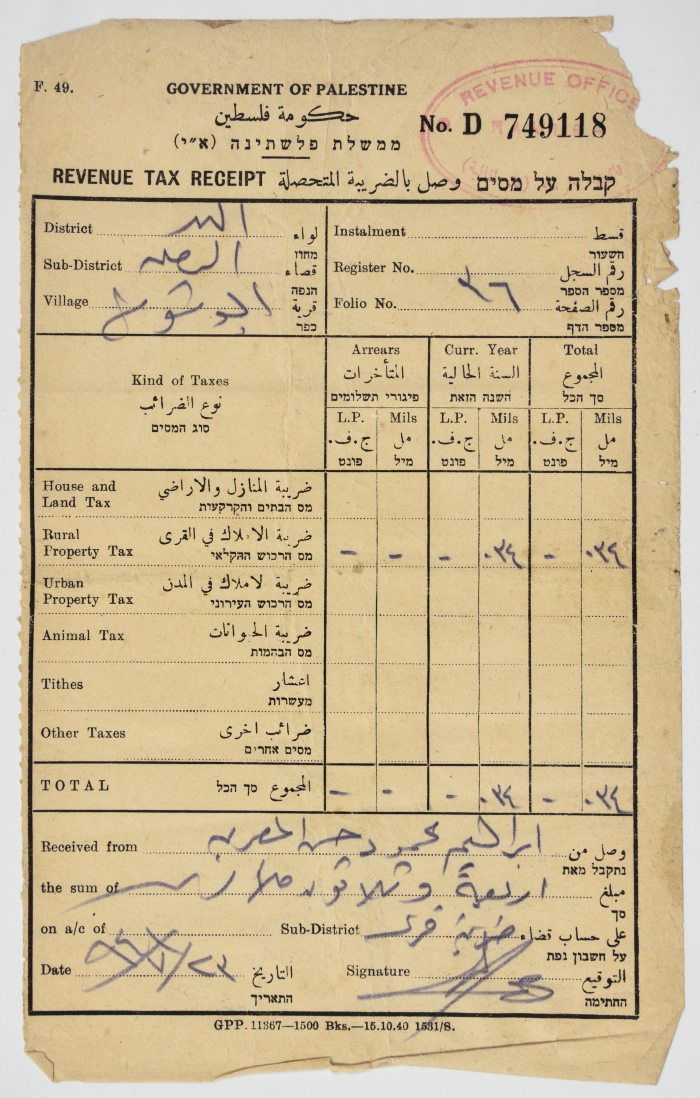 F. 49.
GOVERNMENT OF PALESTINE
REVENUE OFFICE
حكومة فلسطين
No. D 749118
ממשלת פלשתינה (א״י)
REVENUE TAX RECEIPT وصل بالضريبة المتحصلة קבלה על מסים
District لواء
מחוז
Sub-District قضاء
הנפה
Village قرية
כפר
Instalment قسط
השעור
Register No. رقم السجل
מספר הספר
Folio No. ٣٦ رقم الصفحة
מספר הדף
Kind of Taxes
نوع الضرائب
סוג המסים
Arrears Curr. Year Total
المتأخرات السنة الحالية المجموع
פיגורי תשלומים השנה הזאת סך הכל
L.P. Mils L.P. Mils L.P. Mils
ج.ف. مل ج.ف. مل ج.ف. مل
פונט מיל פונט מיל פונט מיל
House and ضريبة المنازل والاراضي
Land Tax מס הבתים והקרקעות
Rural ضريبة الاملاك في القرى
Property Tax מס הרכוש החקלאי - - - ٠٣٤ - ٠٣٤
Urban ضريبة لاملاك في المدن
Property Tax מס הרכוש העירוני
Animal Tax ضريبة الحيوانات
מס הבהמות
Tithes اعشار
מעשרות
Other Taxes ضرائب اخرى
מסים אחרים
TOTAL المجموع סך הכל - - - ٠٣٤ - ٠٣٤
Received from ابراهيم محمود حسن وصل من
נתקבל מאת
the sum of اربعة وثلاثون ملا مبلغ
סך
on a/c of Sub-District ضريبة قرى على حساب قضاء
על חשבון נפת
Date التاريخ Signature التوقيع
התאריך החתימה
GPP. 11367—1500 Bks.—15.10.40 1531/S.